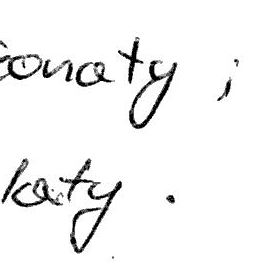 onaty ;
laty .